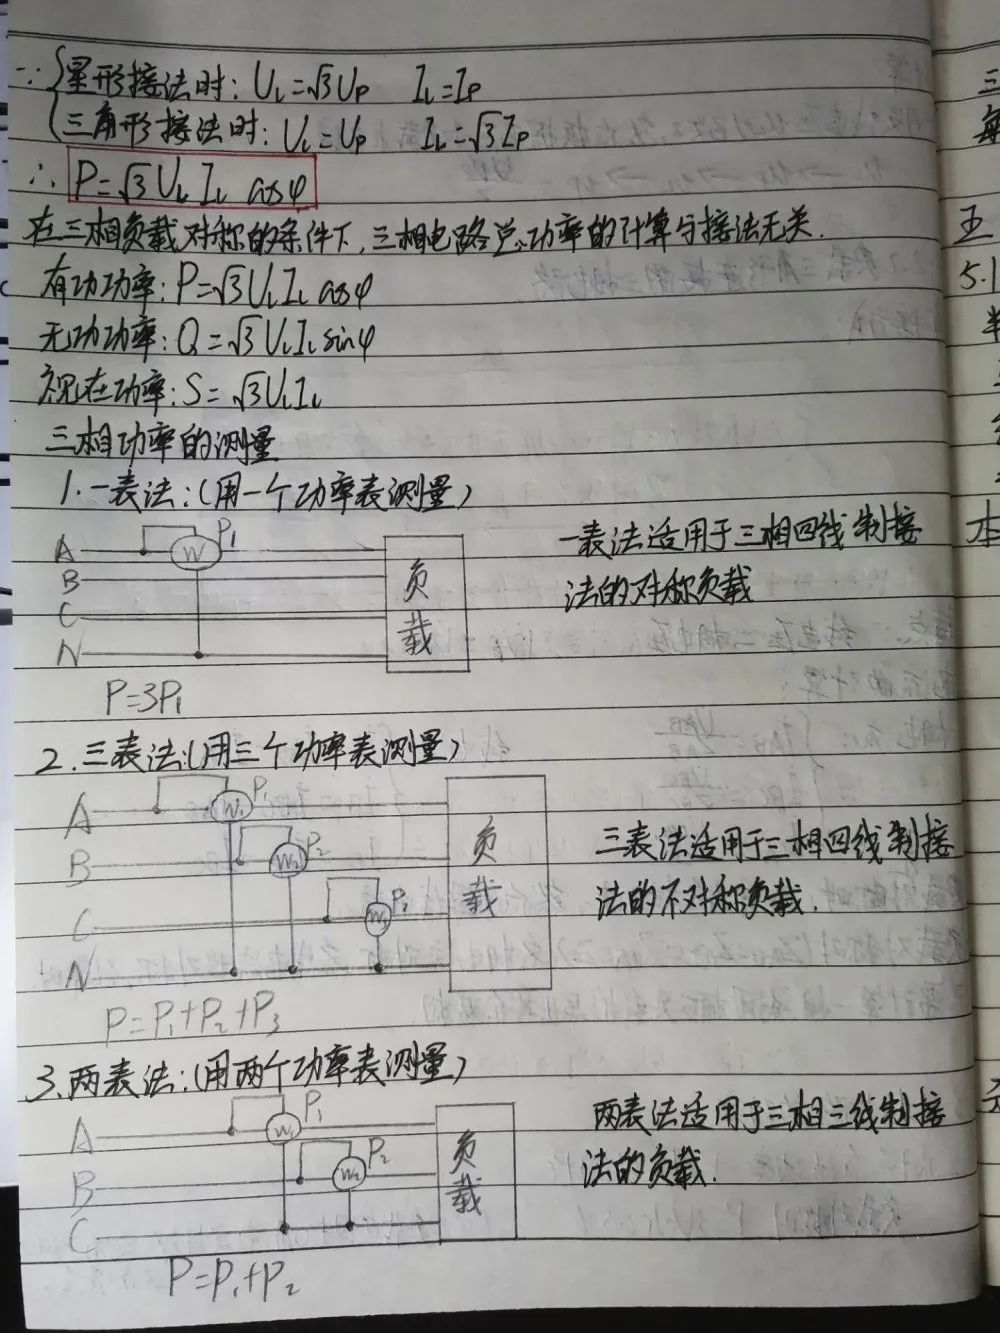 ∵ { 星形接法时: U_L=√3U_P I_L=I_P
三角形接法时: U_L=U_P I_L=√3I_P
∴ P=√3 U_L I_L cosφ
在三相负载对称的条件下,三相电路总功率的计算与接法无关.
有功功率: P=√3U_LI_L cosφ
无功功率: Q=√3U_LI_L sinφ
视在功率: S=√3U_LI_L
三相功率的测量
1.一表法:(用一个功率表测量)
P₁
A W
B
C
N
负
载
一表法适用于三相四线制接
法的对称负载
P=3P₁
2.三表法:(用三个功率表测量)
A W₁ P₁
B W₂ P₂
C W₃
N
负
载
三表法适用于三相四线制接
法的不对称负载.
P=P₁+P₂+P₃
3.两表法:(用两个功率表测量)
A W₁ P₁
B W₂ P₂
C
负
载
两表法适用于三相三线制接
法的负载.
P=P₁+P₂
三
每
王
5.1
本